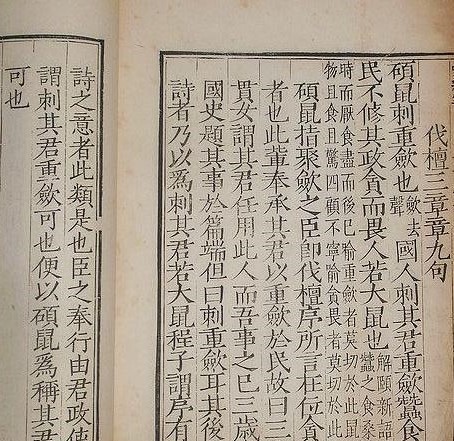 伐檀三章章九句
碩鼠刺重斂也斂去聲國人刺其君重斂蠶食
民不修其政貪而畏人若大鼠也解頤新語蠶之食桑
時而厭食盡而後已喻重斂者莫切於此鼠
物且食且驚四顧不寧喻貪畏者莫切於此
碩鼠指聚斂之臣即伐檀序所言在位貪
者也此輩奉承其君以重斂於民故曰三
貫女謂其君任用此人而吾事之已三歲
國史題其事於篇端但曰刺重斂耳其後
詩者乃以爲刺其君若大鼠程子謂序有
詩之意者此類是也臣之奉行由君政使
謂刺其君重斂可也便以碩鼠爲稱其君
可也